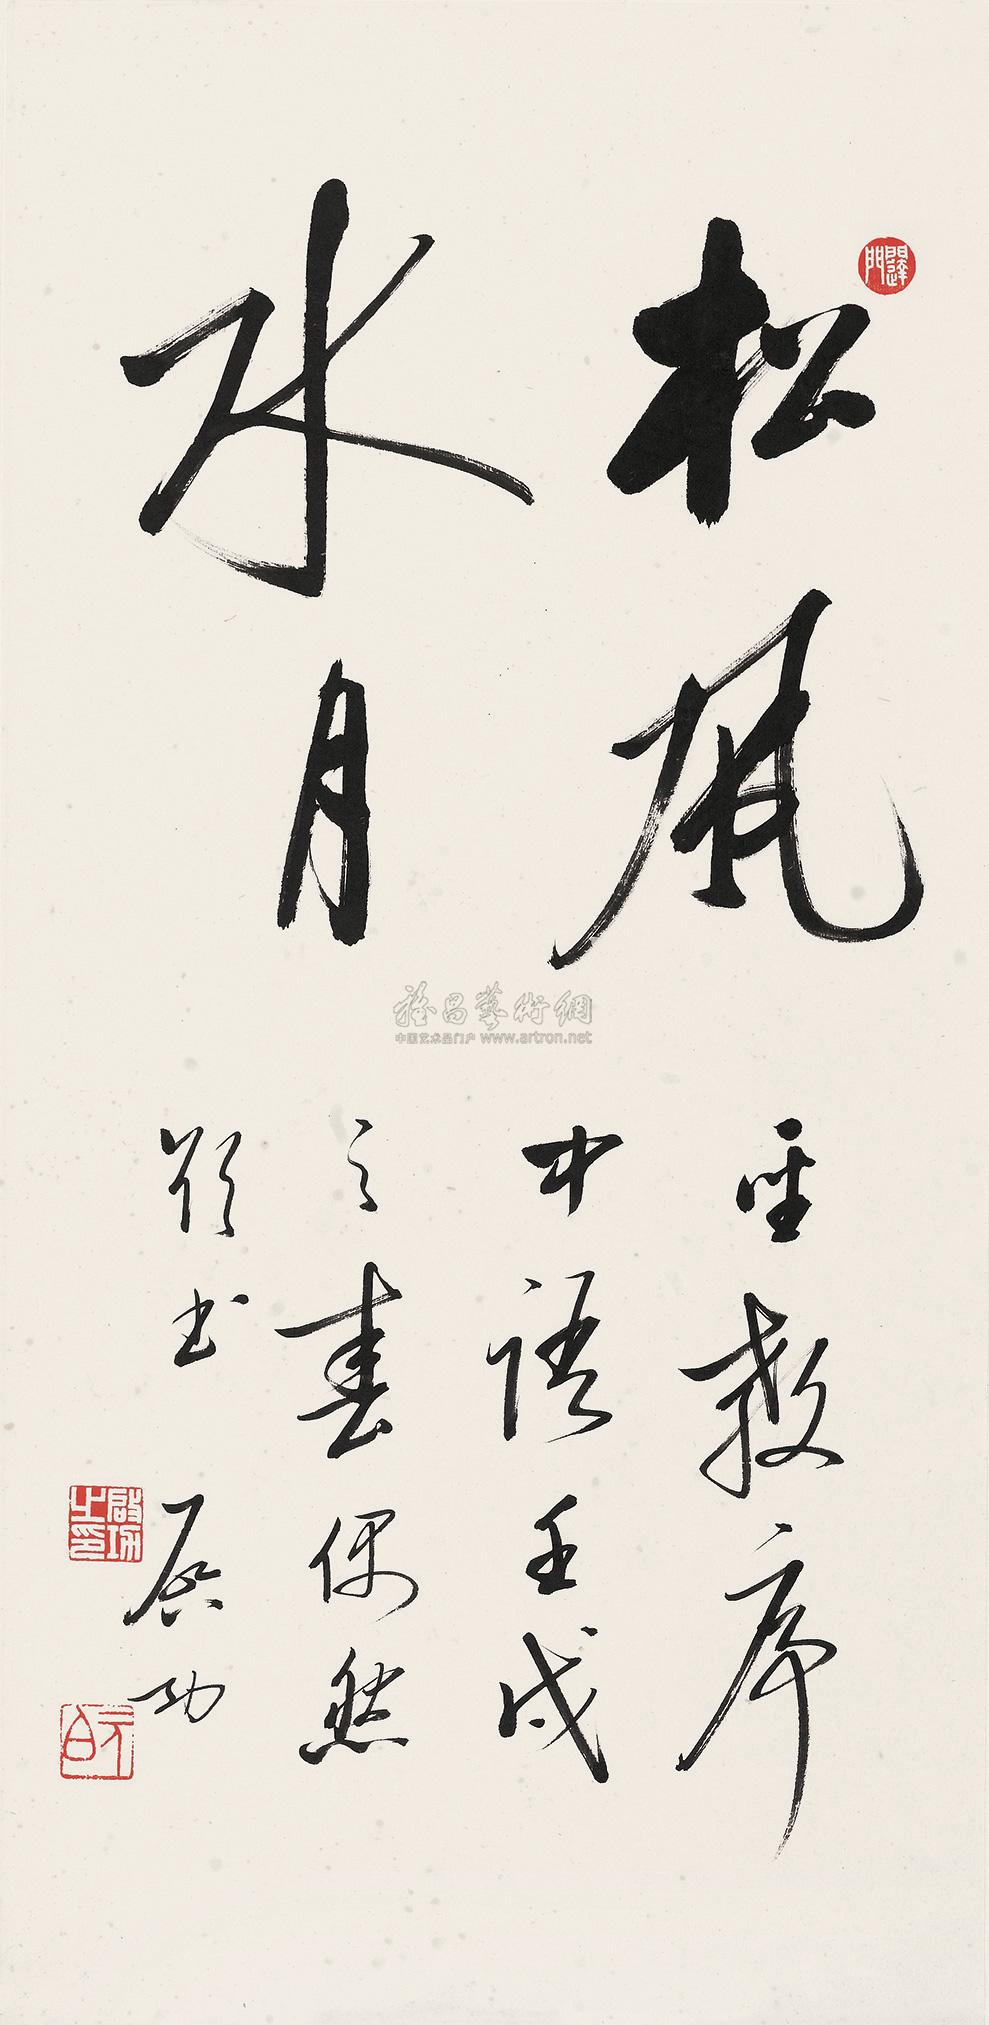 松風
水月
聖教序
中語壬戌
之春偶然
欣書 啟功
啟功之印
元白
雅昌藝術網
中国艺术品门户 www.artron.net